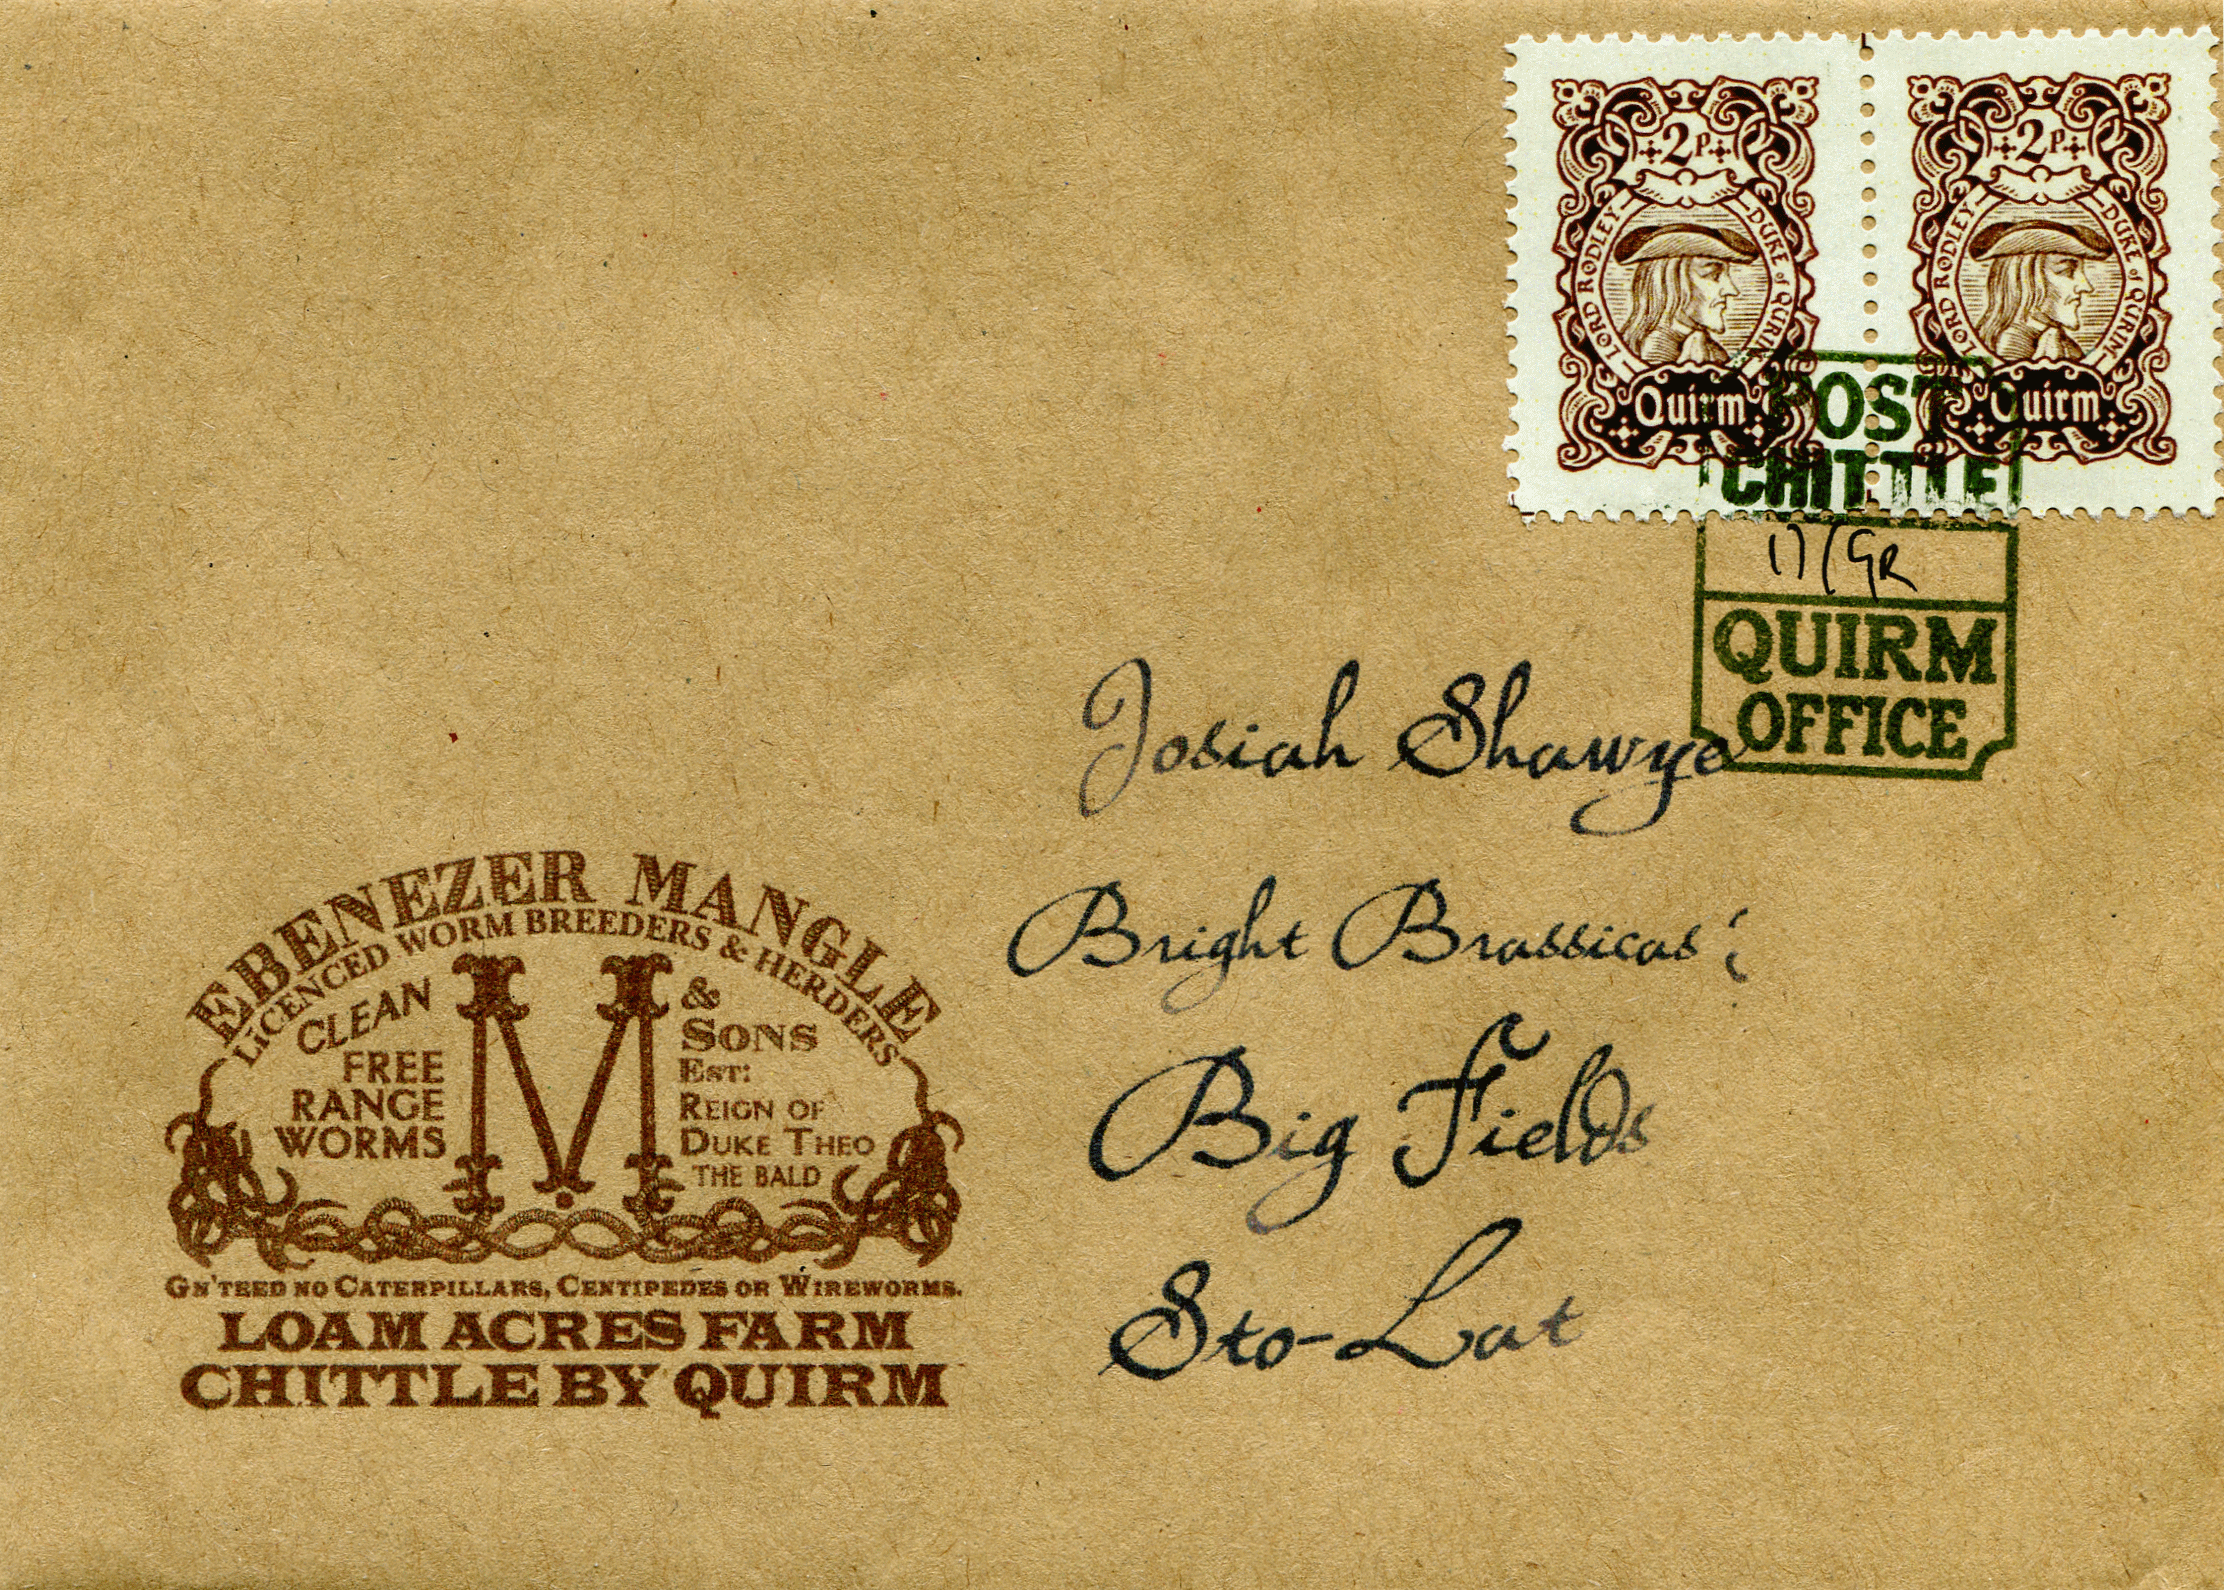 2P
LORD RODLEY DUKE of QUIRM
Quirm
2P
LORD RODLEY DUKE of QUIRM
Quirm
POST
CHITTLE
17/GR
QUIRM
OFFICE
Josiah Shawye
Bright Brassicas
Big Fields
Sto-Lat
EBENEZER MANGLE
LiCENCED WORM BREEDERS & HERDERS
CLEAN
FREE
RANGE
WORMS
M
&
SONS
EST:
REIGN OF
DUKE THEO
THE BALD
GN'TEED NO CATERPILLARS, CENTIPEDES OR WIREWORMS.
LOAM ACRES FARM
CHITTLE BY QUIRM